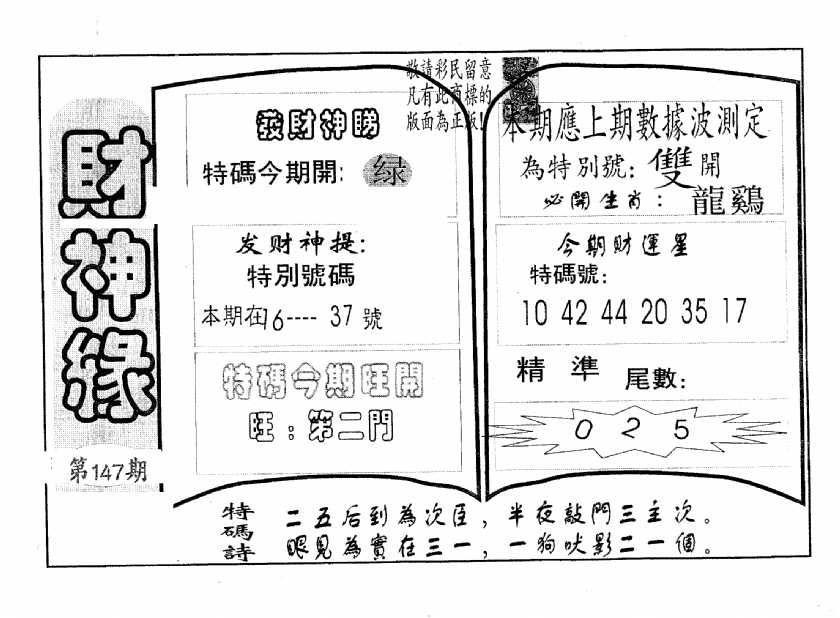 財神緣
第147期
敬請彩民留意
凡有此商標的
版面為正版!
發財神勝
特碼今期開: 绿
发财神提:
特別號碼
本期在16---- 37 號
特碼今期旺開
旺:第二門
本期應上期數據波測定
為特別號: 雙開
必開生肖: 龍鷄
今期财運星
特碼號:
10 42 44 20 35 17
精準 尾數:
0 2 5
特碼詩
二五后到為次臣,半夜敲門三主次。
眼見為實在三一,一狗吠影二一個。